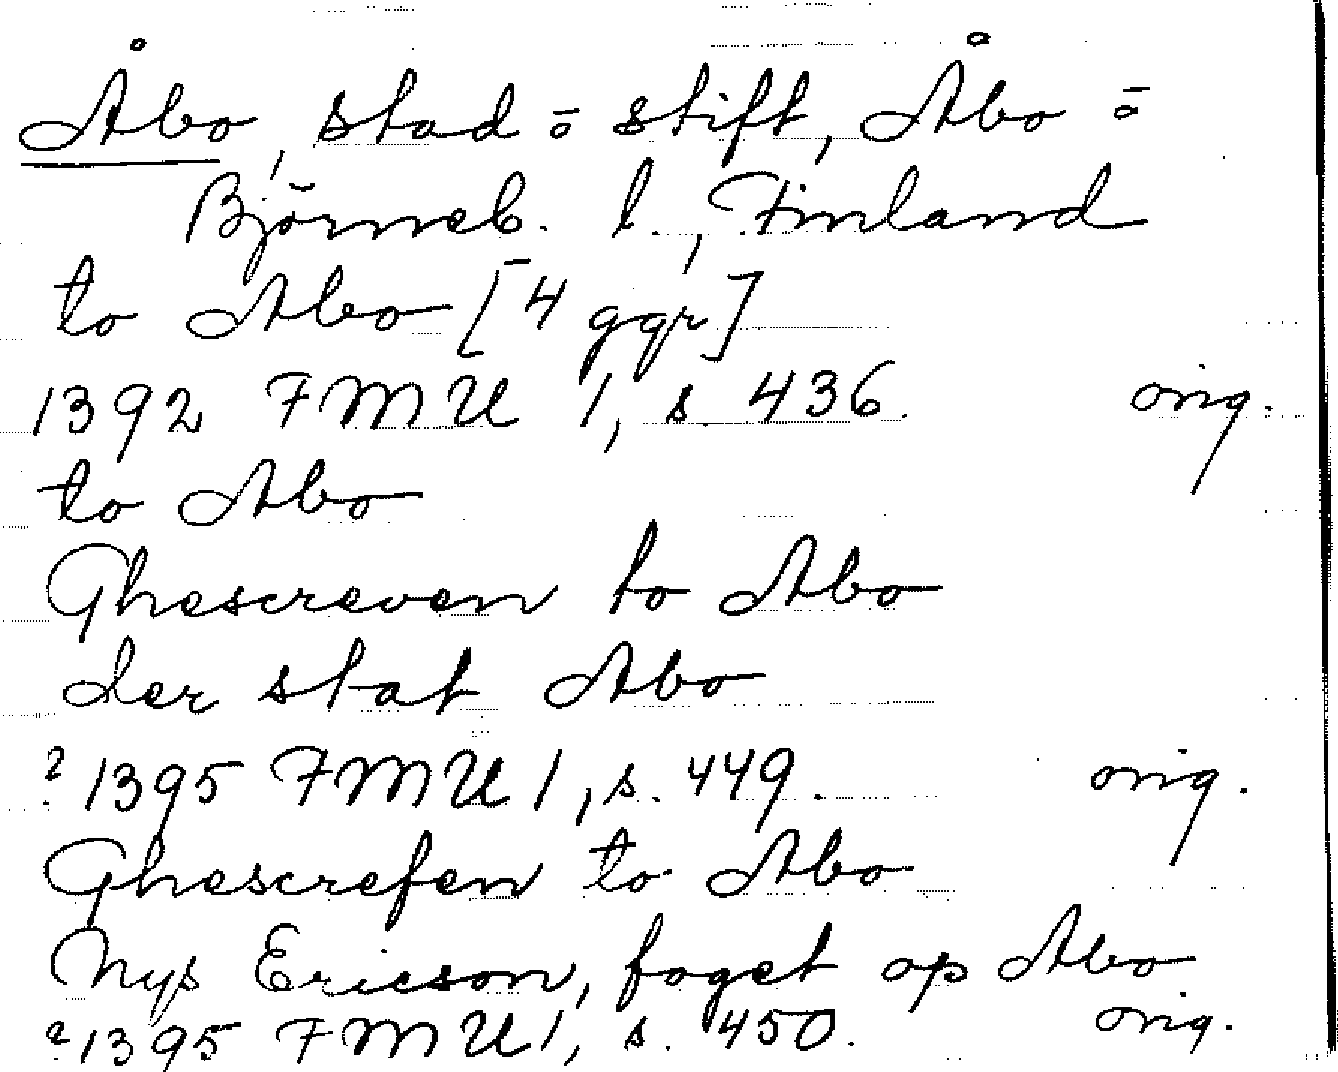 Åbo, stad o stift, Åbo o
Björneb. l., Finland
to Abo [4 ggr]
1392 FMU 1, s. 436. orig.
to Abo
Ghescreven to Abo
der stat Abo
? 1395 FMU 1, s. 449. orig.
Ghescrefen to Abo
Nys Ericson, foget op Abo
? 1395 FMU 1, s. 450. orig.